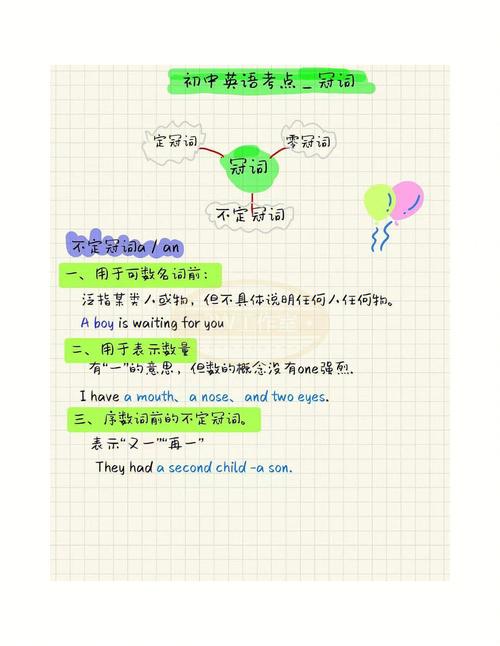 初中英语考点_冠词
定冠词
零冠词
冠词
不定冠词
不定冠词a/an
一、用于可数名词前:
泛指某类人或物，但不具体说明任何人任何物。
A boy is waiting for you
二、用于表示数量
有“一”的意思，但数的概念没有one强烈.
I have a mouth、a nose、and two eyes.
三、序数词前的不定冠词。
表示“又一”“再一”
They had a second child-a son.